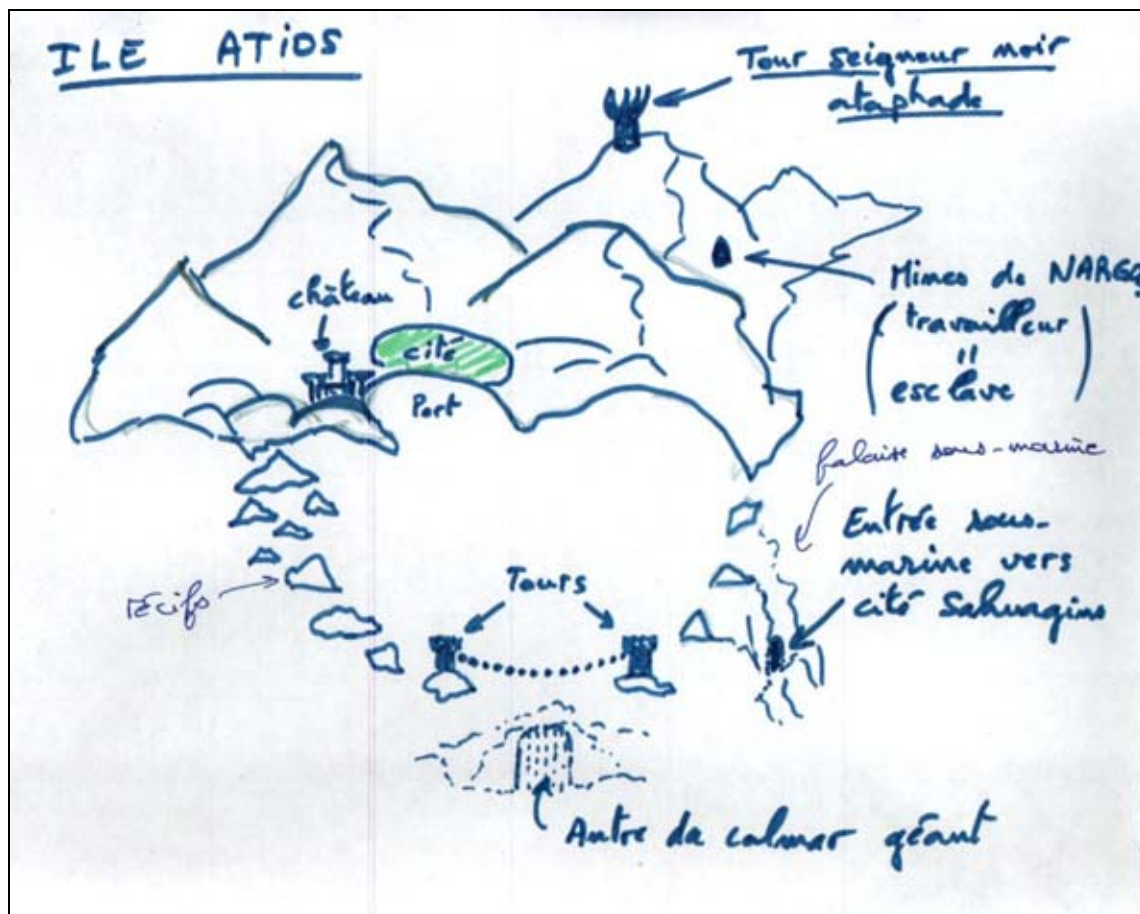 ILE ATIOS
Tour seigneur noir
ataphade
château
cité
Port
Mines de NARGQ
(travailleur
=
esclave)
falaise sous-marine
Entrée sous-
marine vers
cité Sahuagins
récifs
Tours
Antre du calmar géant